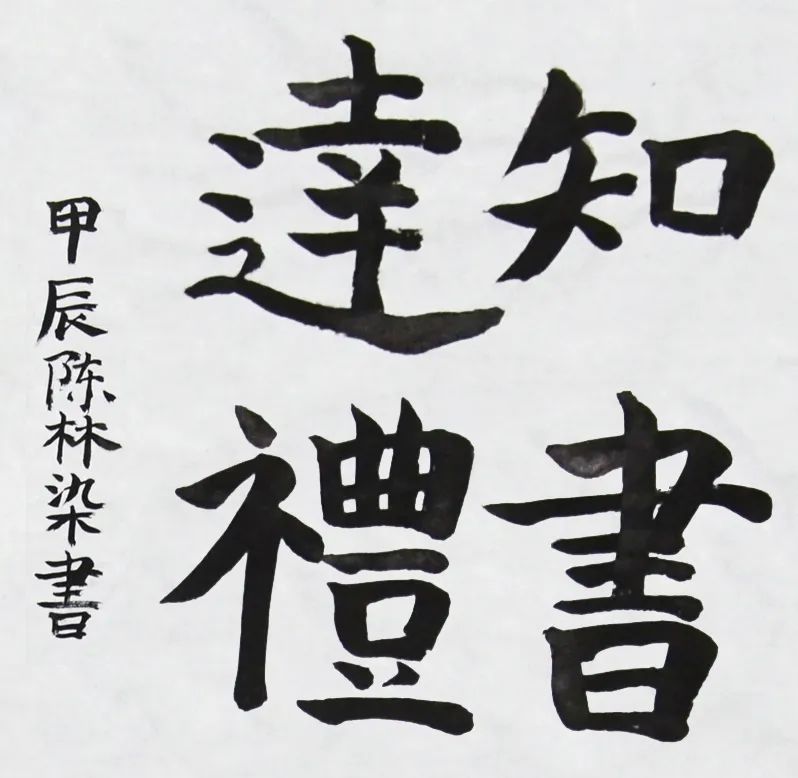 知書
達禮
甲辰陈林染書